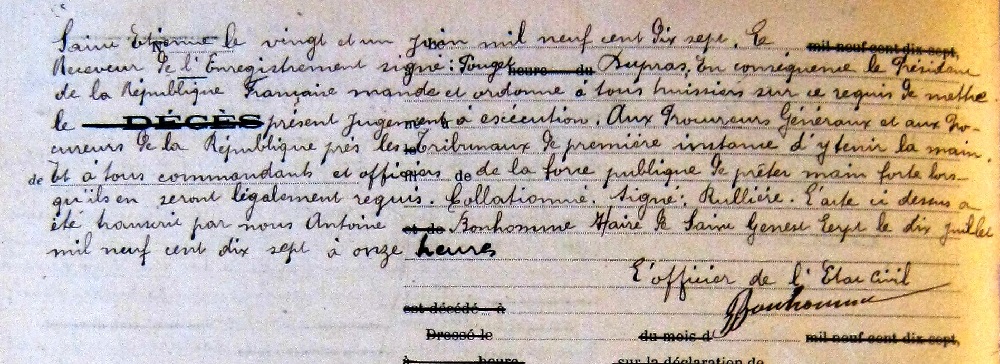 Saint Etienne le vingt et un juin mil neuf cent dix sept. Le mil neuf cent dix sept,
Receveur de l'Enregistrement signé: Pouget heure du Dupras, En conséquence le Président
de la République Française mande et ordonne à tous huissiers sur ce requis de mettre
le DÉCÈS présent jugement à exécution. Aux Procureurs Généraux et aux Pro-
cureurs de la République près les Tribunaux de première instance d'y tenir la main.
de Et à tous commandants et officiers de de la force publique de prêter main forte lors-
qu'ils en seront légalement requis. Collationné. Signé: Rullière. L'acte ci dessus a
été transcrit par nous Antoine et de Bonhomme Maire de Saint Genest Lerpt le dix juillet
mil neuf cent dix sept à onze heures
L'officier de l'Etat civil
est décédé à Bonhomme
Dressé le du mois d mil neuf cent dix sept,
à heure sur la déclaration de